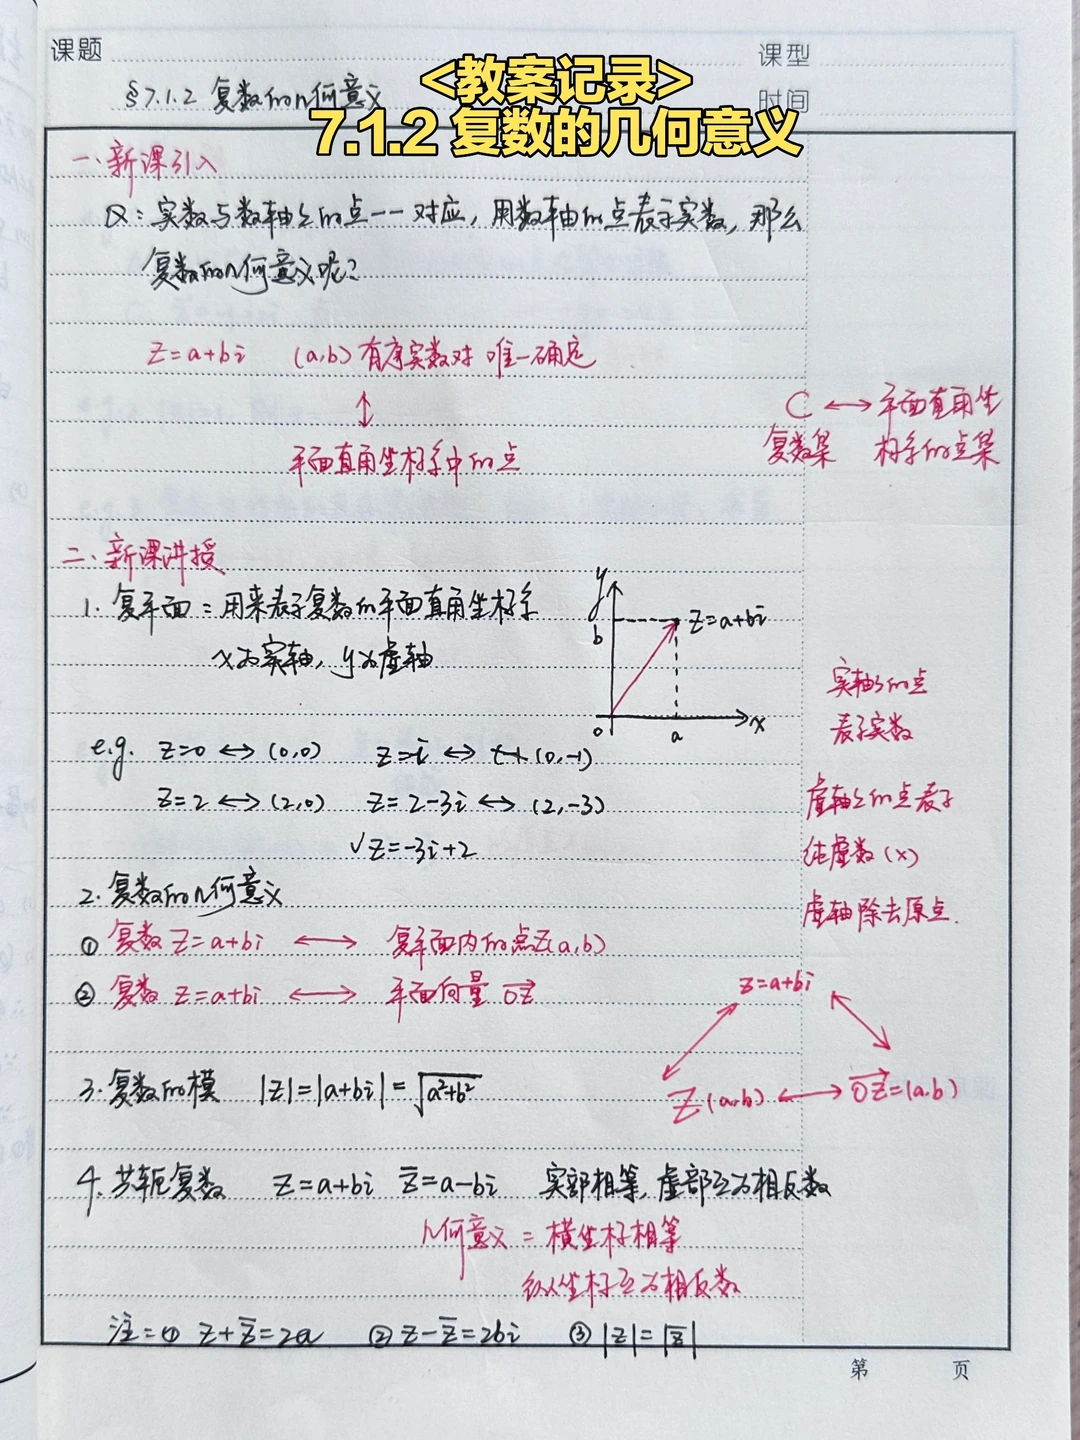 课题
课型
<教案记录>
§7.1.2 复数的几何意义
时间
7.1.2 复数的几何意义
一、新课引入
Q：实数与数轴上的点一一对应，用数轴的点表示实数，那么
复数的几何意义呢？
z=a+bi (a,b)有序实数对 唯一确定
↕
平面直角坐标系中的点
C ↔ 平面直角坐
复数集 标系的点集
二、新课讲授
1. 复平面：用来表示复数的平面直角坐标系
x为实轴，y为虚轴
y
b
z=a+bi
o
a
x
实轴上的点
表示实数
e.g. z=0 ↔ (0,0) z=-i ↔ (0,-1)
z=2 ↔ (2,0) z=2-3i ↔ (2,-3)
√z=-3i+2
虚轴上的点表示
纯虚数 (×)
虚轴除去原点.
2. 复数的几何意义
① 复数 z=a+bi ↔ 复平面内的点Z(a,b)
② 复数 z=a+bi ↔ 平面向量 \overrightarrow{OZ}
z=a+bi
Z(a,b) ↔ \overrightarrow{OZ}=(a,b)
3. 复数的模 |z|=|a+bi|=\sqrt{a²+b²}
4. 共轭复数 z=a+bi \overline{z}=a-bi 实部相等，虚部互为相反数
几何意义：横坐标相等
纵坐标互为相反数
注：① z+\overline{z}=2a ② z-\overline{z}=2bi ③ |z|=|\overline{z}|
第 页